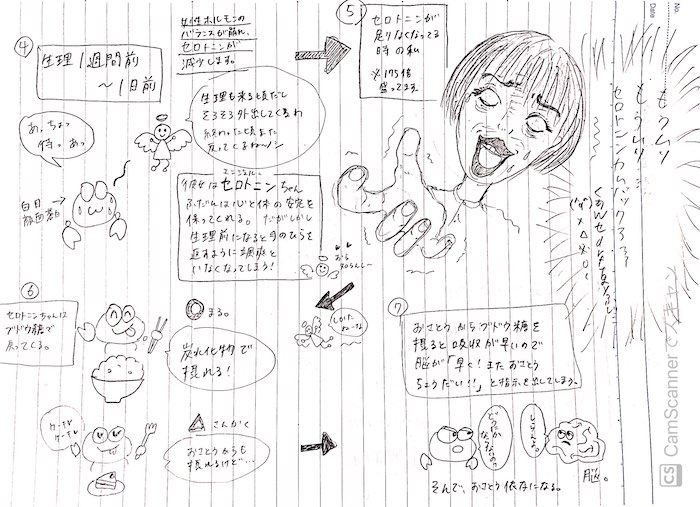 ④
生理1週間前
〜1日前
女性ホルモンの
バランスが崩れ、
セロトニンが
減少します。
あ、ちょっ
待っ あっ
白目
顔面蒼白
生理も来る頃だし
そろそろ外出してくるわ
終わった頃また
戻ってくるわ〜ノシ
エンジェル
彼女はセロトニンちゃん
ふだんは心と体の安定を
保ってくれる。だがしかし
生理前になると手のひらを
返すように颯爽と
いなくなってしまう!
あら
知らんしー
⑤
セロトニンが
足りなくなってる
時の私
※175倍
盛ってます
No.
Date
もうムリ
もうムリ
セロトニンカムバックろ
⑥
セロトニンちゃんは
ブドウ糖で
戻ってくる。
まる。
炭水化物で
摂れる!
しかた
ねーな
さんかく
おさとうからも
摂れるけど…
⑦
おさとうからブドウ糖を
摂ると吸収が早いので
脳が「早く!またおさとう
ちょうだい!!」と指示を出してしまう。
脳。
そんで、おさとう依存になる。
CS CamScanner でスキャン